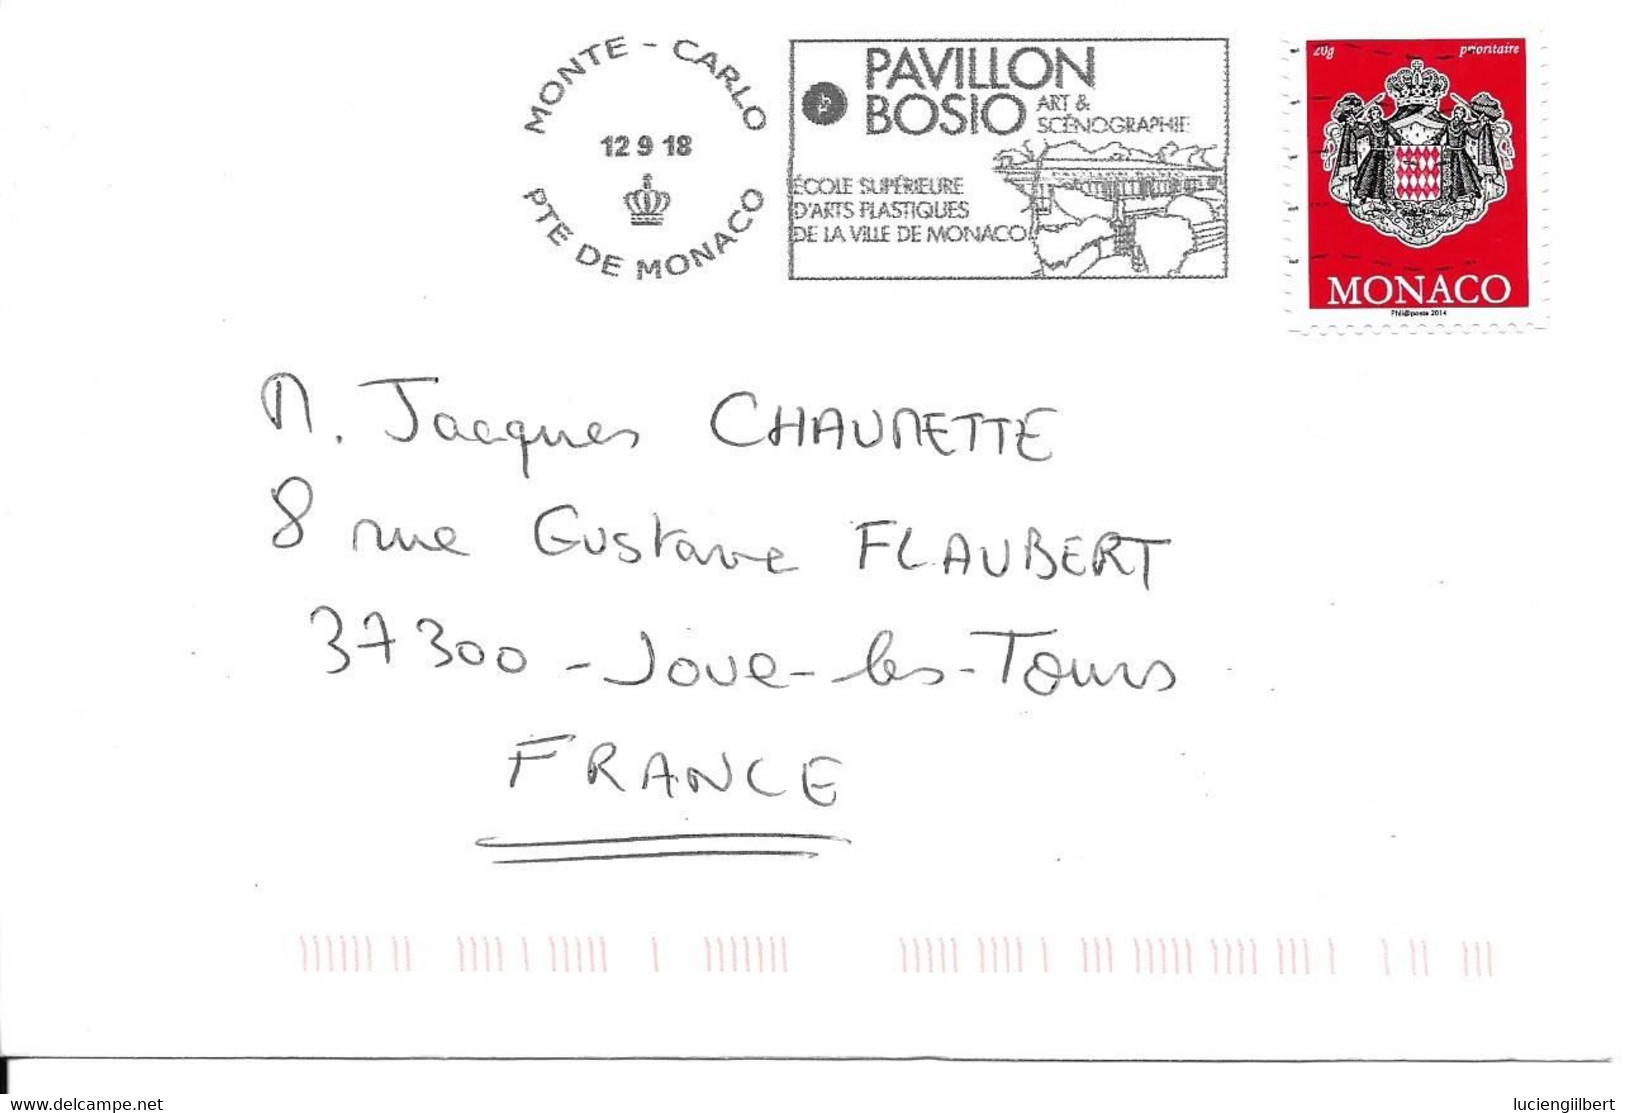 MONTE - CARLO
12 9 18
PTE DE MONACO
PAVILLON
BOSIO ART &
SCÉNOGRAPHIE
ÉCOLE SUPÉRIEURE
D'ARTS PLASTIQUES
DE LA VILLE DE MONACO
20g prioritaire
MONACO
Phil@poste 2014
M. Jacques CHAUMETTE
8 rue Gustave FLAUBERT
37300 - Joue-les-Tours
FRANCE
www.delcampe.net
luciengilbert